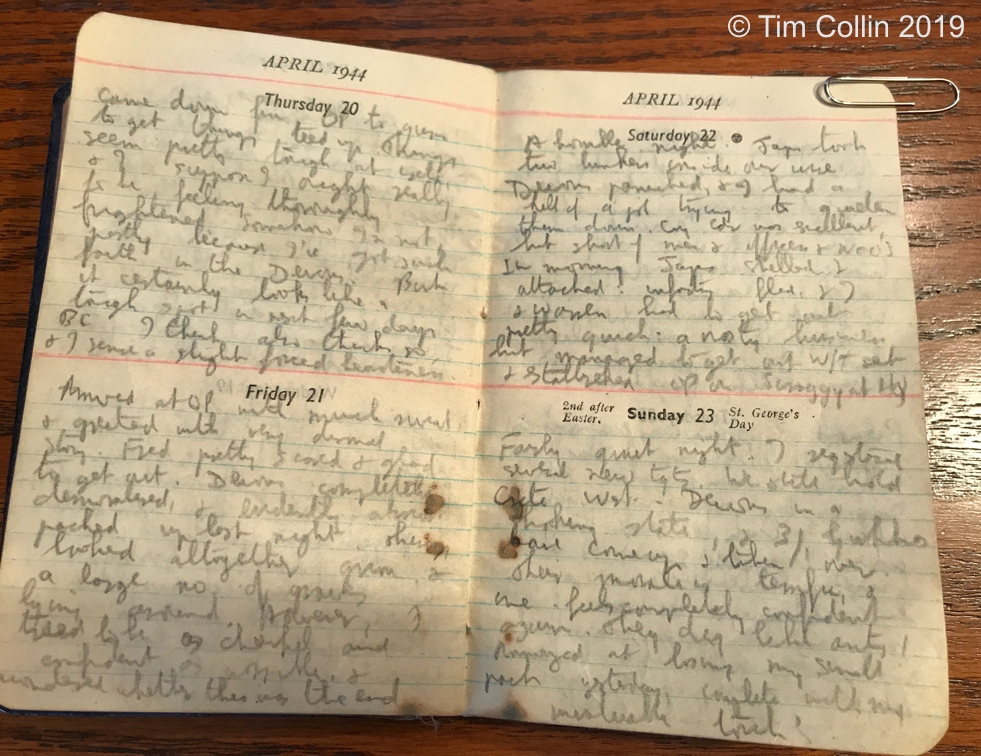 © Tim Collin 2019
APRIL 1944
Thursday 20
Came down from OP to guns
to get things teed up. Things
seem pretty tough out well
& I suppose I ought really
to be feeling thoroughly
frightened somehow I'm not,
partly because I've got such
faith in the Devons. But
it certainly looks like a
tough spot in next few days
BC I think also thinks so,
& I sense a slight forced heartiness.
Friday 21
Arrived at OP with much sweat
& greeted with very dismal
story. Fred pretty scared & glad
to get out. Devons completely
demoralised, & evidently almost
packed up last night. They
looked altogether grim, &
a large no. of graves
lying around. However, I
tried to be as cheerful and
confident as possible, &
wondered whether this was the end
APRIL 1944
Saturday 22
A horrible night. Japs took
two bunkers inside our wire.
Devons panicked, & I had a
hell of a job trying to quieten
them down. Coy Cdr was excellent,
but short of men & officers & NCO's
In morning Japs shelled &
attached! infantry & I
& had to get out
pretty quick: a nasty business
but managed to get out W/T set
& established OP on Scraggy at
2nd after Easter. Sunday 23 St. George's Day
Fairly quiet night. I registered
several new tgts. We still hold
Crete West. Devons in a
shaking state, & 3/1 Gurkhas
have come up & taken over.
Their morale is terrific, &
one feels completely confident
again. They dig like ants!
Annoyed at losing my small
pack yesterday, complete with my
invaluable torch!